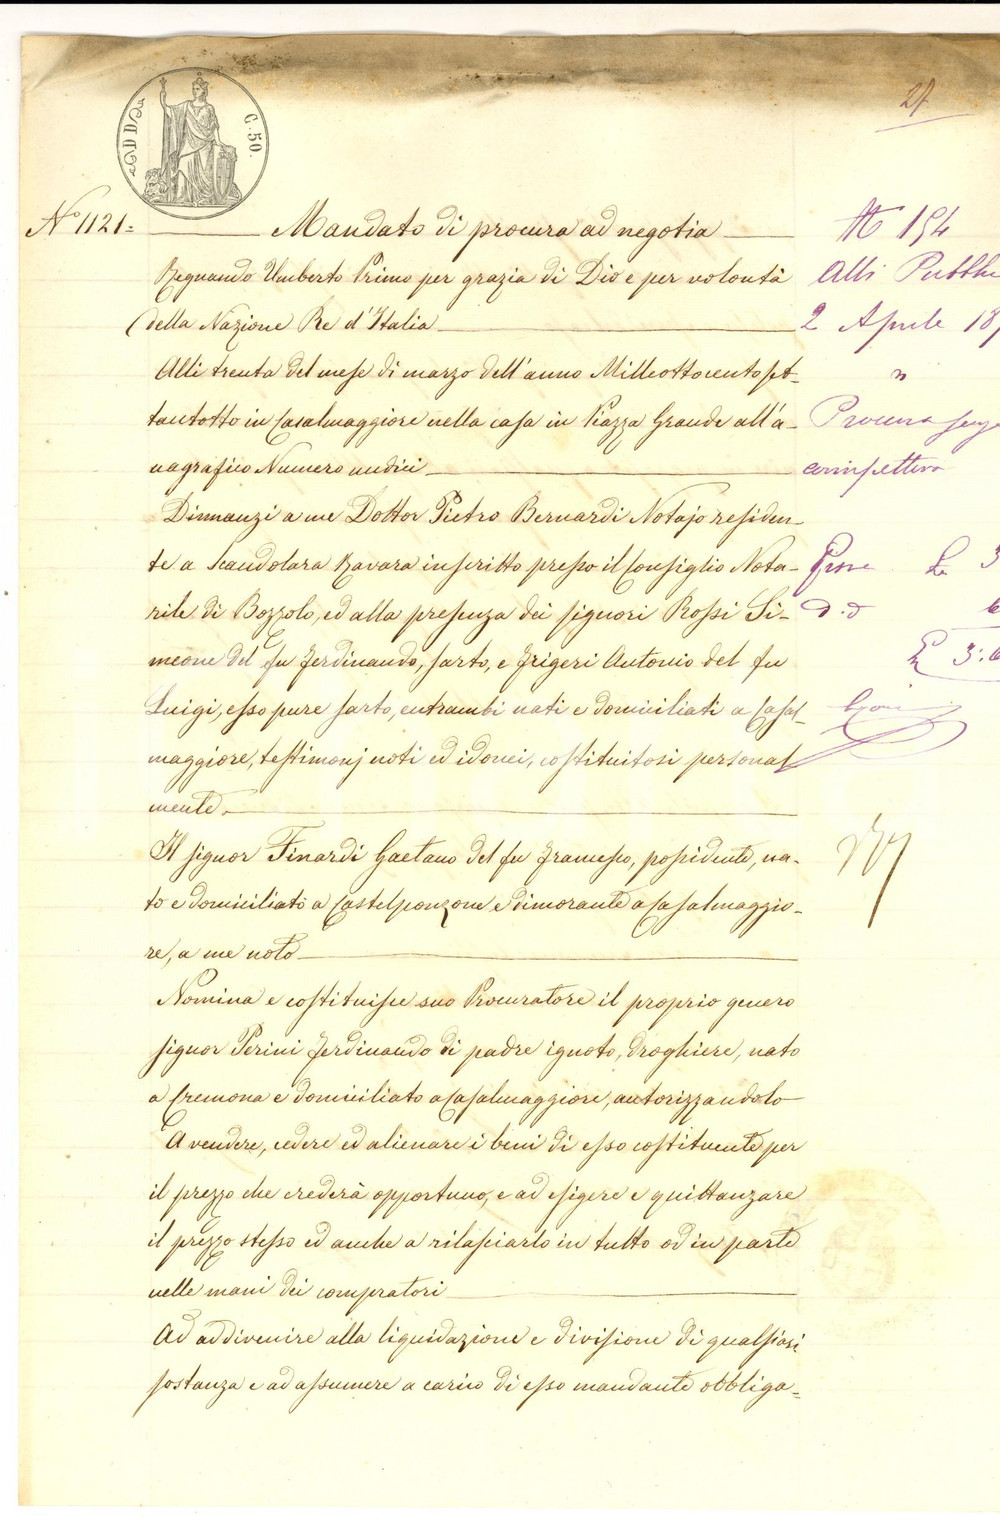 27
C. 50.
N.º 1121=
Mandato di procura ad negotia
Regnando Umberto Primo per grazia di Dio e per volontà
della Nazione Re d'Italia
Alli trenta del mese di marzo dell'anno Milleottocentoset-
tantotto in Casalmaggiore nella casa in Piazza Grande all'a-
nagrafico Numero undici
Dinnanzi a me Dottor Pietro Bernardi Notajo residen-
te a Scandolara Ravara inscritto presso il Consiglio Nota-
rile di Bozzolo, ed alla presenza dei signori Rossi Si-
meone del fu Ferdinando, sarto, e Frigeri Antonio del fu
Luigi, esso pure sarto, entrambi nati e domiciliati a Casal-
maggiore, testimonj noti ed idonei, costituitosi personal
mente.
Il signor Finardi Gaetano del fu Francesco, possidente, na-
to e domiciliato a Castelponzone e dimorante a Casalmaggio-
re, a me noto
Nomina e costituisce suo Procuratore il proprio genero
signor Perini Ferdinando di padre ignoto, droghiere, nato
a Cremona e domiciliato a Casalmaggiore, autorizzandolo
A vendere, cedere ed alienare i beni di esso costituente per
il prezzo che crederà opportuno, e ad esigere e quittanzare
il prezzo stesso ed anche a rilasciarlo in tutto od in parte
nelle mani dei compratori
Ad addivenire alla liquidazione e divisione di qualsiasi
sostanza e ad assumere a carico di esso mandante obbliga-
194
Atti Pubbl
2 Aprile 18
Procura
3
3:6